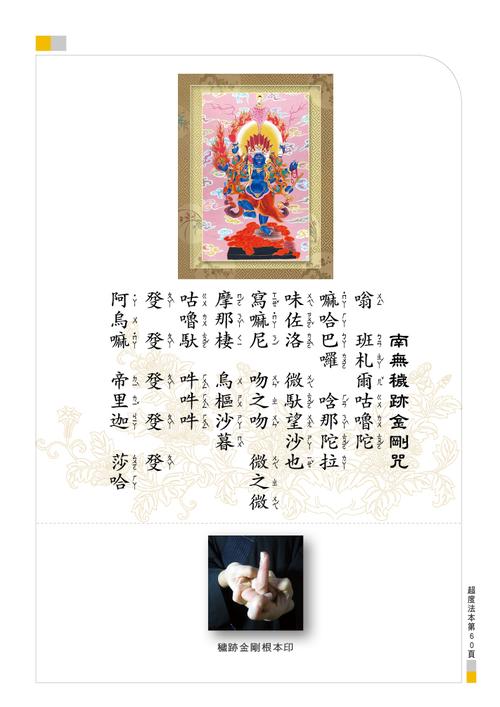 南無穢跡金剛咒
嗡 班札爾咕嚕陀
嘛哈巴囉 唅那陀拉
味佐洛 微馱望沙也
寫嘛尼 吻之吻 微之微
摩那棲 烏樞沙暮
咕嚕馱 吽吽吽
癹 癹 癹 癹 癹
阿烏嘛 帝里迦 莎哈
穢跡金剛根本印
超度法本第60頁